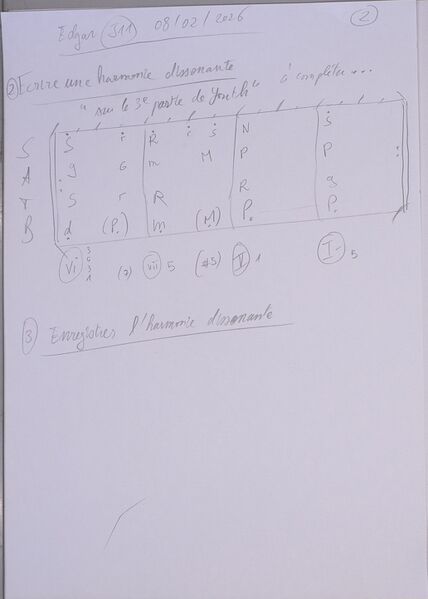 Edgar 311 08/02/2026 2
2 Ecrire une harmonie dissonante
" sur le 3e partie de Youth " à compléter ...
S Ṡ ṙ Ṙ ṙ ṡ N Ṡ
A g G m M P P :
T : S r R R g
B ḍ (P.) ṃ (Ṃ) P. P.
vi (7) vii 5 (#5) V 1 I - 5
3 Enregistrer l'harmonie dissonante